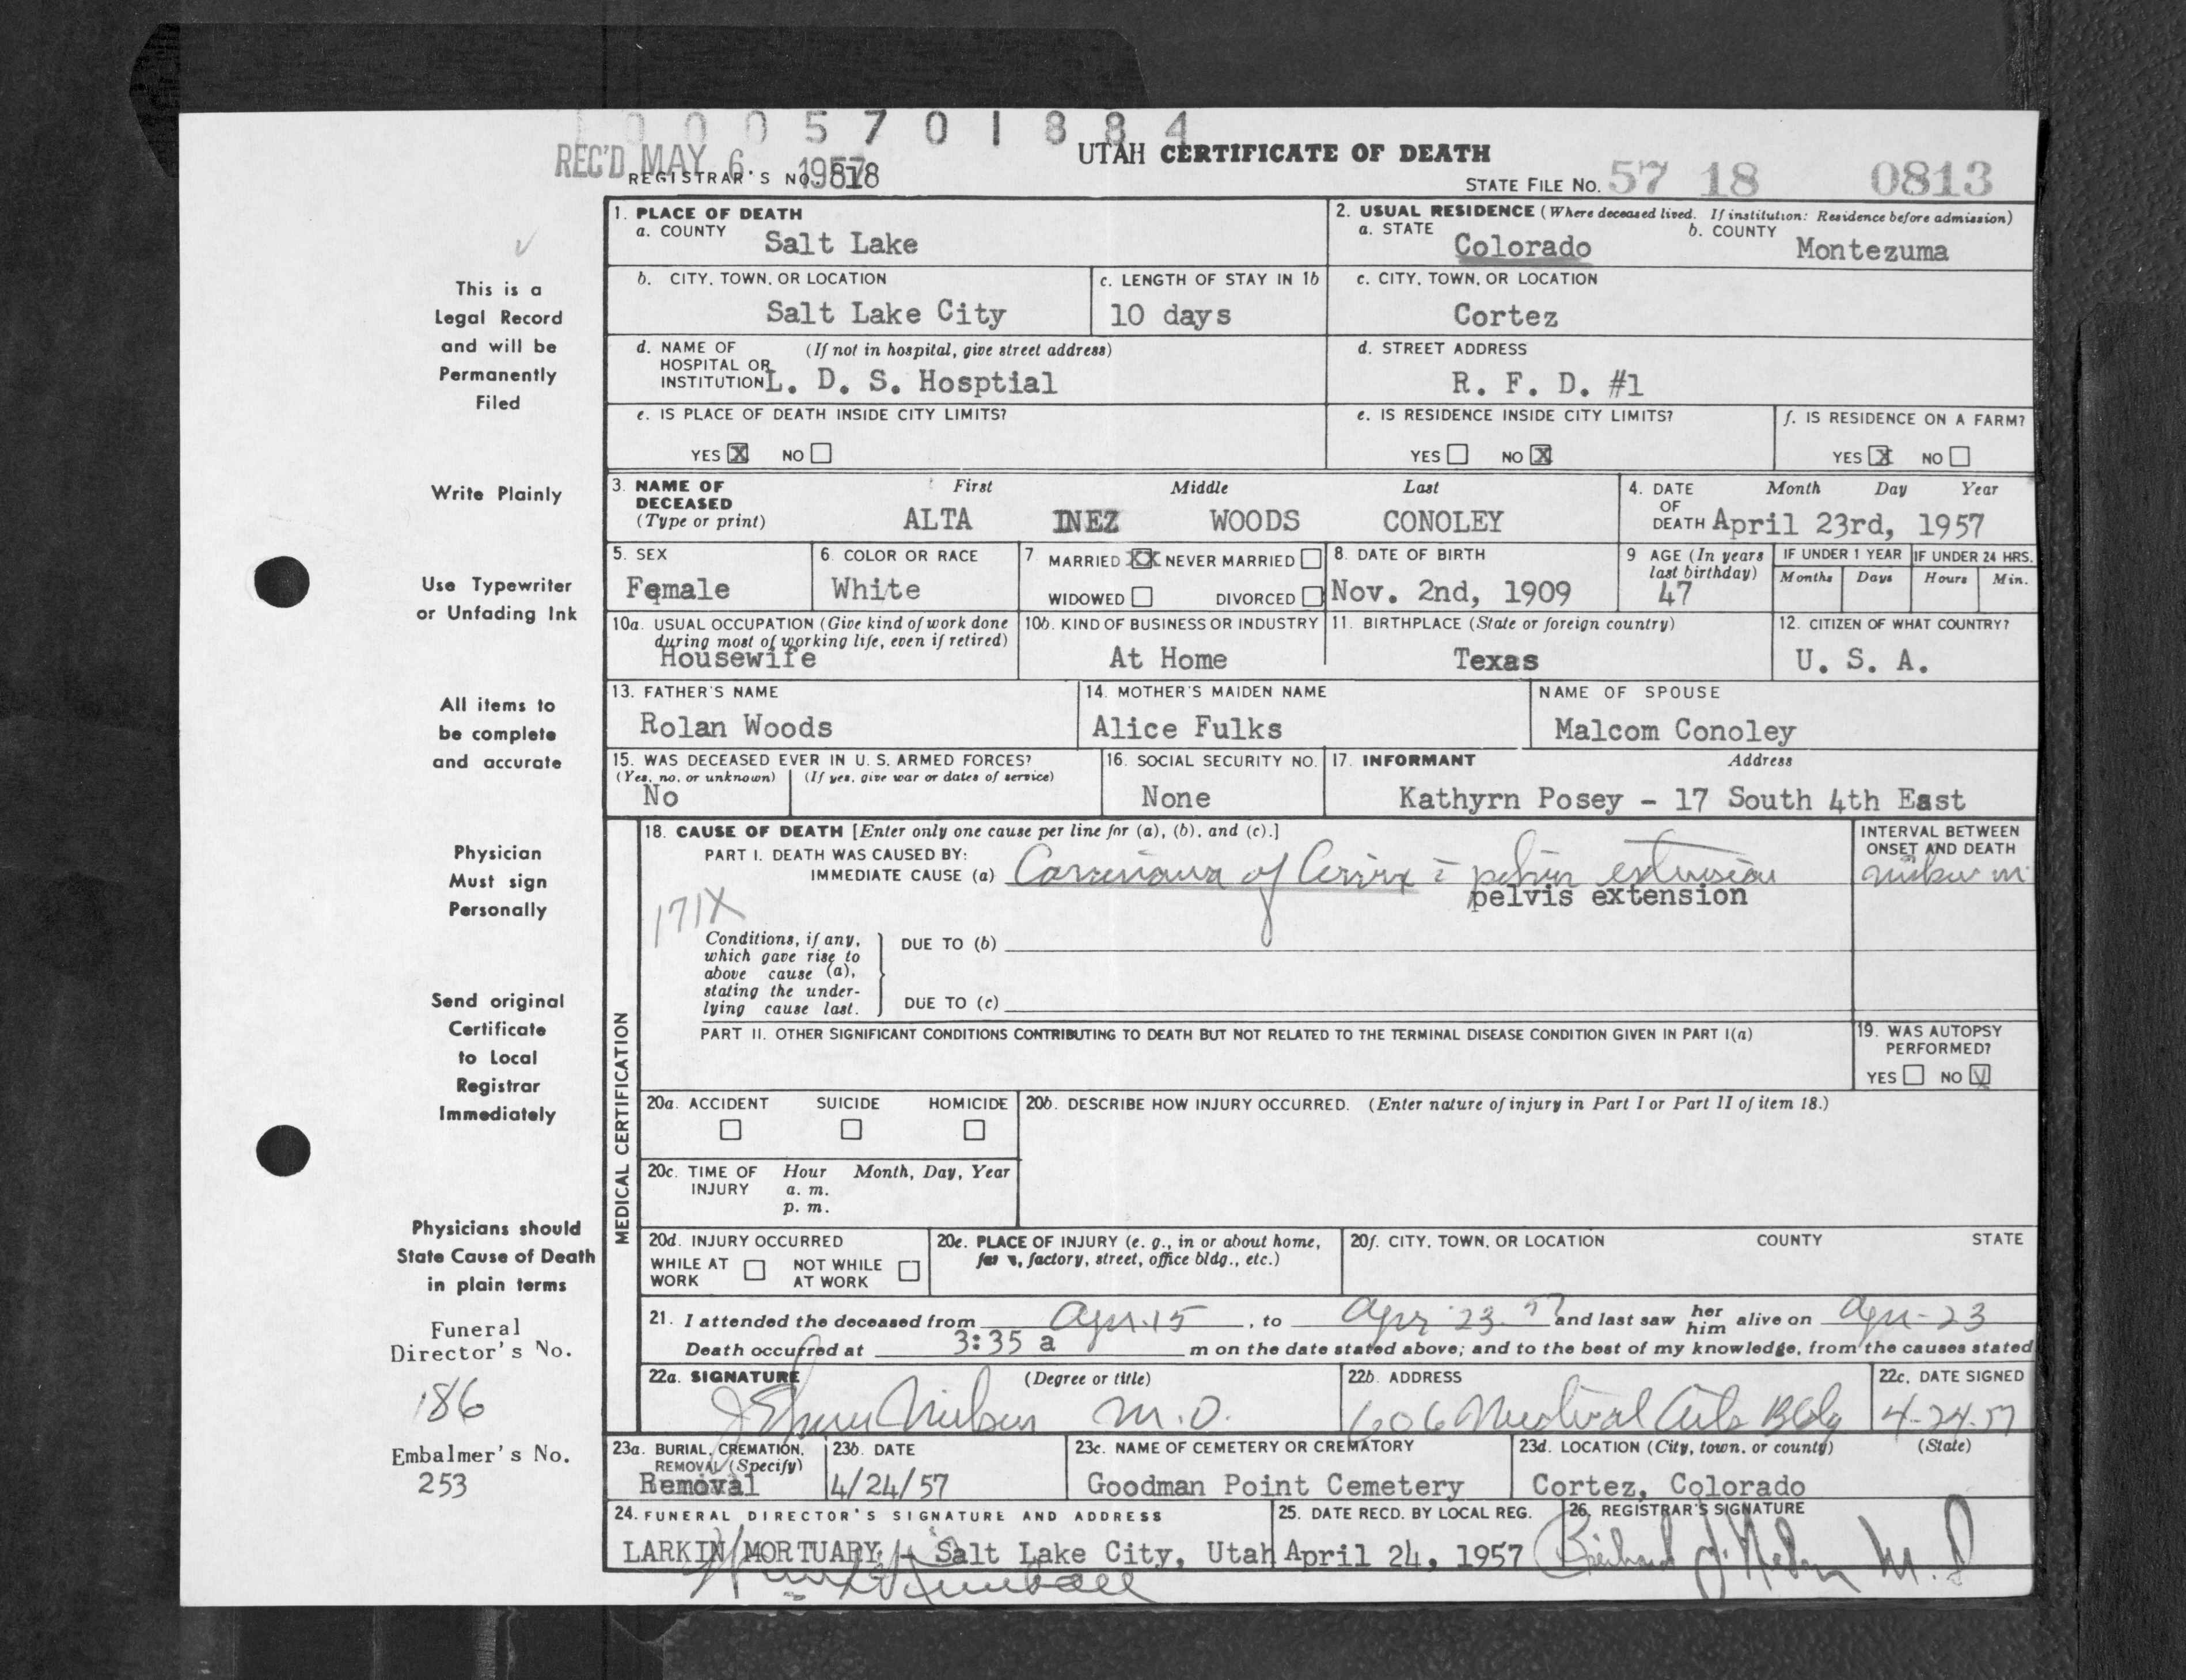 0 0 0 5 7 0 1 8 8 4
REC'D MAY 6 1957
UTAH CERTIFICATE OF DEATH
REGISTRAR'S NO. 818
STATE FILE NO. 57 18 0813
This is a
Legal Record
and will be
Permanently
Filed
Write Plainly
Use Typewriter
or Unfading Ink
All items to
be complete
and accurate
Physician
Must sign
Personally
Send original
Certificate
to Local
Registrar
Immediately
Physicians should
State Cause of Death
in plain terms
Funeral
Director's No.
186
Embalmer's No.
253
1. PLACE OF DEATH
a. COUNTY
Salt Lake
2. USUAL RESIDENCE (Where deceased lived. If institution: Residence before admission)
a. STATE
Colorado
b. COUNTY
Montezuma
b. CITY, TOWN, OR LOCATION
Salt Lake City
c. LENGTH OF STAY IN 1b
10 days
c. CITY, TOWN, OR LOCATION
Cortez
d. NAME OF (If not in hospital, give street address)
HOSPITAL OR
INSTITUTION L. D. S. Hosptial
d. STREET ADDRESS
R. F. D. #1
e. IS PLACE OF DEATH INSIDE CITY LIMITS?
YES X NO
e. IS RESIDENCE INSIDE CITY LIMITS?
YES NO X
f. IS RESIDENCE ON A FARM?
YES X NO
3. NAME OF
DECEASED
(Type or print)
First Middle Last
ALTA INEZ WOODS CONOLEY
4. DATE Month Day Year
OF
DEATH April 23rd, 1957
5. SEX
Female
6. COLOR OR RACE
White
7 MARRIED XX NEVER MARRIED
WIDOWED DIVORCED
8. DATE OF BIRTH
Nov. 2nd, 1909
9 AGE (In years
last birthday)
47
IF UNDER 1 YEAR
Months Days
IF UNDER 24 HRS.
Hours Min.
10a. USUAL OCCUPATION (Give kind of work done
during most of working life, even if retired)
Housewife
10b. KIND OF BUSINESS OR INDUSTRY
At Home
11. BIRTHPLACE (State or foreign country)
Texas
12. CITIZEN OF WHAT COUNTRY?
U. S. A.
13. FATHER'S NAME
Rolan Woods
14. MOTHER'S MAIDEN NAME
Alice Fulks
NAME OF SPOUSE
Malcom Conoley
15. WAS DECEASED EVER IN U. S. ARMED FORCES?
(Yes, no, or unknown) (If yes, give war or dates of service)
No
16. SOCIAL SECURITY NO.
None
17. INFORMANT Address
Kathyrn Posey - 17 South 4th East
MEDICAL CERTIFICATION
18. CAUSE OF DEATH [Enter only one cause per line for (a), (b), and (c).]
PART I. DEATH WAS CAUSED BY:
IMMEDIATE CAUSE (a) Carcinoma of Cervix c̄ pelvis extension
pelvis extension
171X
INTERVAL BETWEEN
ONSET AND DEATH
Conditions, if any,
which gave rise to
above cause (a),
stating the under-
lying cause last.
DUE TO (b)
DUE TO (c)
PART II. OTHER SIGNIFICANT CONDITIONS CONTRIBUTING TO DEATH BUT NOT RELATED TO THE TERMINAL DISEASE CONDITION GIVEN IN PART I(a)
19. WAS AUTOPSY
PERFORMED?
YES NO V
20a. ACCIDENT SUICIDE HOMICIDE
20b. DESCRIBE HOW INJURY OCCURRED. (Enter nature of injury in Part I or Part II of item 18.)
20c. TIME OF Hour Month, Day, Year
INJURY a. m.
p. m.
20d. INJURY OCCURRED
WHILE AT NOT WHILE
WORK AT WORK
20e. PLACE OF INJURY (e. g., in or about home,
factory, street, office bldg., etc.)
20f. CITY, TOWN, OR LOCATION COUNTY STATE
21. I attended the deceased from Apr. 15, to Apr 23 57 and last saw her him alive on Apr - 23
Death occurred at 3:35 a m on the date stated above; and to the best of my knowledge, from the causes stated
22a. SIGNATURE (Degree or title)
M.D.
22b. ADDRESS
606 Medical Arts Bldg
22c. DATE SIGNED
4-24-57
23a. BURIAL, CREMATION,
REMOVAL (Specify)
Removal
23b. DATE
4/24/57
23c. NAME OF CEMETERY OR CREMATORY
Goodman Point Cemetery
23d. LOCATION (City, town, or county) (State)
Cortez, Colorado
24. FUNERAL DIRECTOR'S SIGNATURE AND ADDRESS
LARKIN MORTUARY - Salt Lake City, Utah
25. DATE RECD. BY LOCAL REG.
April 24, 1957
26. REGISTRAR'S SIGNATURE
M.D